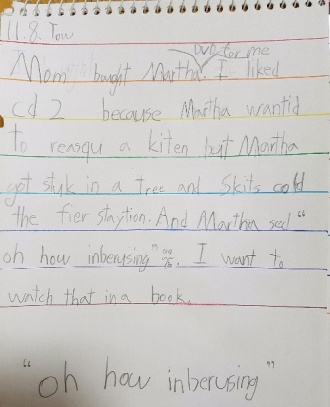 11.8. Tow
DVD for me
Mom bought Martha. I liked
cd 2 because Martha wantid
to reasqu a kiten but Martha
got styk in a tree and Skits cold
the fier staytion. And Martha sed "
oh how inberusing". I want to
watch that in a book.
"oh how inberusing"